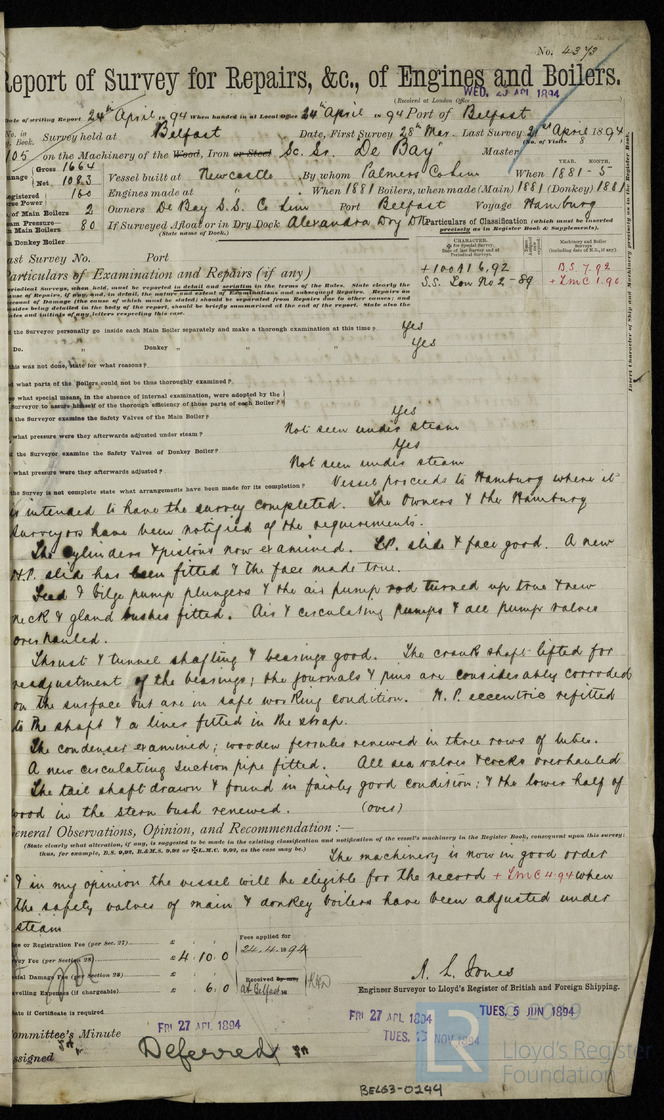 No. 4373
Report of Survey for Repairs, &c., of Engines and Boilers.
WED. 25 APL 1894
(Received at London Office
Date of writing Report 24th April 1894 When handed in at Local Office 24th April 1894 Port of Belfast
No. in Reg. Book. Survey held at Belfast Date, First Survey 28th Mar. Last Survey 21st April 1894
(No. of Visits 8
105 on the Machinery of the Wood, Iron or Steel Sc. Sr. "De Bay" Master
Tonnage Gross 1664 Net 1083 Vessel built at Newcastle By whom Palmers Co Lim When 1881-5
YEAR. MONTH.
Registered Horse Power 160 Engines made at " " When 1881 Boilers, when made (Main) 1881 (Donkey) 1881
No. of Main Boilers 2 Owners De Bay S.S. Co Lim Port Belfast Voyage Hamburg
Steam Pressure in Main Boilers 80 If Surveyed Afloat or in Dry Dock Alexandra Dry Dk
(State name of Dock.)
Particulars of Classification (which must be inserted precisely as in Register Book & Supplements).
in Donkey Boiler
Last Survey No. Port
CHARACTER.
Machinery and Boiler Surveys
+100A1 6,92
S.S. Lon No 2-89
B.S. 7.92
+ LMC 1.90
Particulars of Examination and Repairs (if any)
Insert Character of Ship and Machinery precisely as in the Register Book.
the Surveyor personally go inside each Main Boiler separately and make a thorough examination at this time? Yes
Do. " Donkey " " " Yes
this was not done, state for what reasons?
what parts of the Boilers could not be thoroughly examined?
what special means, in the absence of internal examination, were adopted by the
Surveyor to assure himself of the thorough efficiency of those parts of each Boiler?
the Surveyor examine the Safety Valves of the Main Boiler? Yes
what pressure were they afterwards adjusted under steam? Not seen under steam
the Surveyor examine the Safety Valves of Donkey Boiler? Yes
what pressure were they afterwards adjusted? Not seen under steam
the Survey is not complete state what arrangements have been made for its completion? Vessel proceeds to Hamburg where it
is intended to have the survey completed. The Owners & the Hamburg
Surveyors have been notified of the requirements.
The cylinders & pistons now examined. L.P. slide & face good. A new
H.P. slide has been fitted & the face made true.
Feed & bilge pump plungers & the air pump rod turned up true & new
neck & gland bushes fitted. Air & circulating pumps & all pump valves
overhauled.
Thrust & tunnel shafting & bearings good. The crank shaft lifted for
readjustment of the bearings; the journals & pins are considerably corroded
on the surface but are in safe working condition. H.P. eccentric refitted
to the shaft & a liner fitted in the strap.
The condenser examined; wooden ferrules renewed in three rows of tubes.
A new circulating suction pipe fitted. All sea valves & cocks overhauled
The tail shaft drawn & found in fairly good condition; & the lower half of
wood in the stern bush renewed. (over)
General Observations, Opinion, and Recommendation :—
(State clearly what alteration, if any, is suggested to be made in the existing classification and notification of the vessel's machinery in the Register Book, consequent upon this survey;
thus, for example, B.S. 9,92, B.&M.S. 9,92 or ✠L.M.C. 9,92, as the case may be.)
The machinery is now in good order
& in my opinion the vessel will be eligible for the record + LMC 4.94 when
the safety valves of main & donkey boilers have been adjusted under
steam
or Registration Fee (per Sec. 27) £
Survey Fee (per Section 28) £ 4.10.0
Special Damage Fee (per Section 28) £
Travelling Expenses (if chargeable) £ 6.0
Fees applied for
24.4.1894
Received by me,
at Belfast
A. L. Jones
Engineer Surveyor to Lloyd's Register of British and Foreign Shipping.
State if Certificate is required
Committee's Minute
FRI 27 APL 1894
FRI 27 APL 1894
TUES. 5 JUN 1894
TUES. 13 NOV 1894
Assigned
Deferred
© 2019
LR
Lloyd's Register
Foundation
BEL63-0244